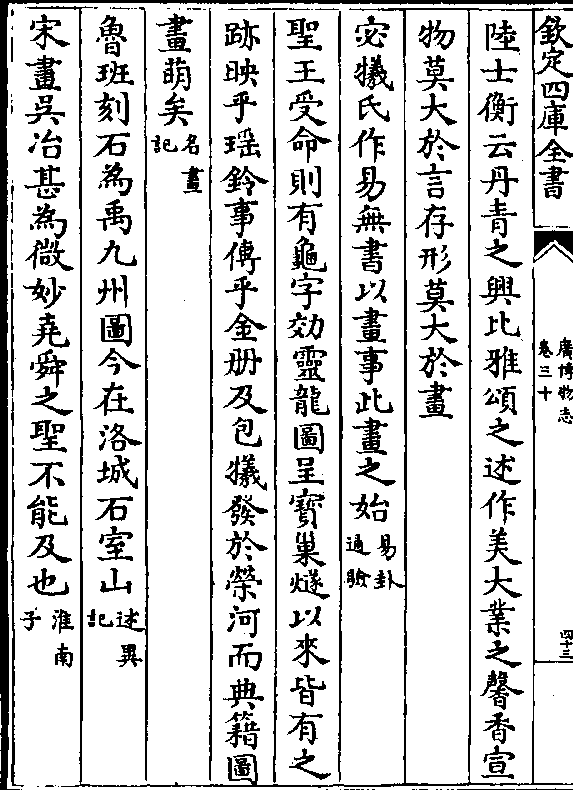 欽定四庫全書
廣博物志
卷三十
四十三
陸士衡云丹青之興比雅頌之述作美大業之馨香宣
物莫大於言存形莫大於畫
宓犧氏作易無書以畫事此畫之始易卦通驗
聖王受命則有龜字効靈龍圖呈寶巢燧以來皆有之
跡映乎瑶鈴事傳乎金册及包犧發於榮河而典籍圖
畫萌矣名畫記
魯班刻石為禹九州圖今在洛城石室山述異記
宋畫吳冶甚為微妙堯舜之聖不能及也淮南子